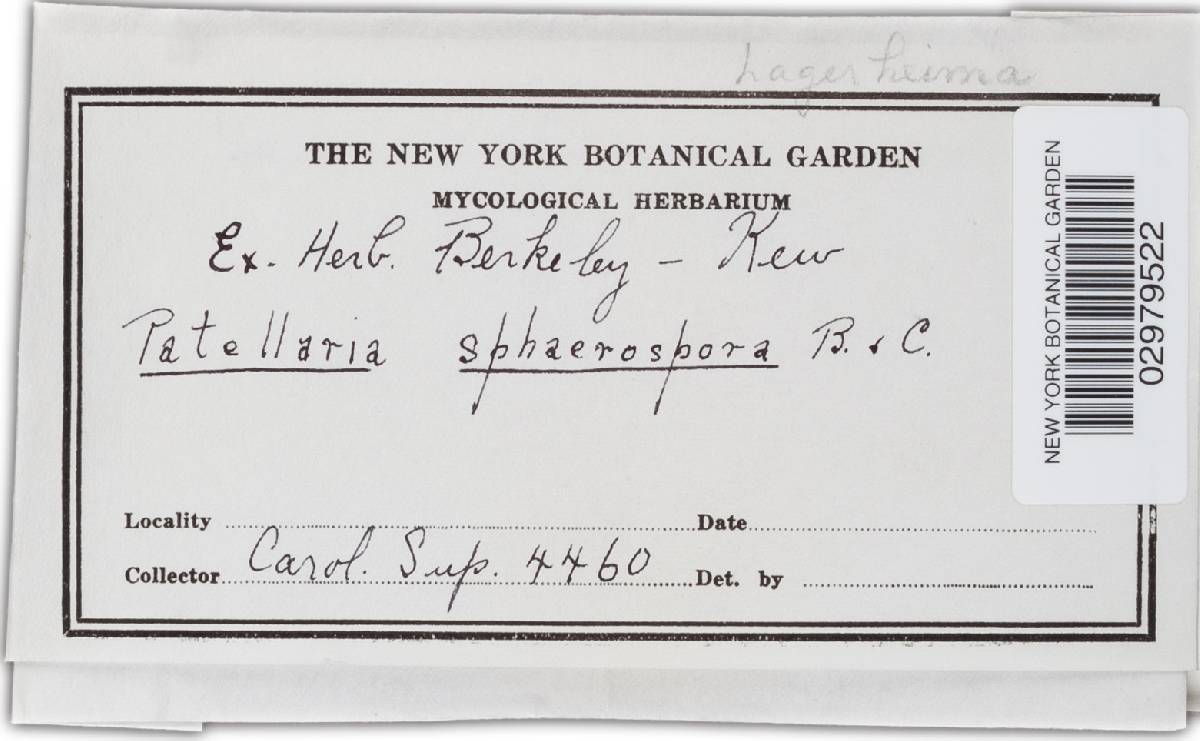 Lagerheima
THE NEW YORK BOTANICAL GARDEN
MYCOLOGICAL HERBARIUM
Ex. Herb. Berkeley – Kew
Patellaria sphaerospora B. & C.
Locality Date
Collector Carol. Sup. 4460 Det. by
NEW YORK BOTANICAL GARDEN
02979522